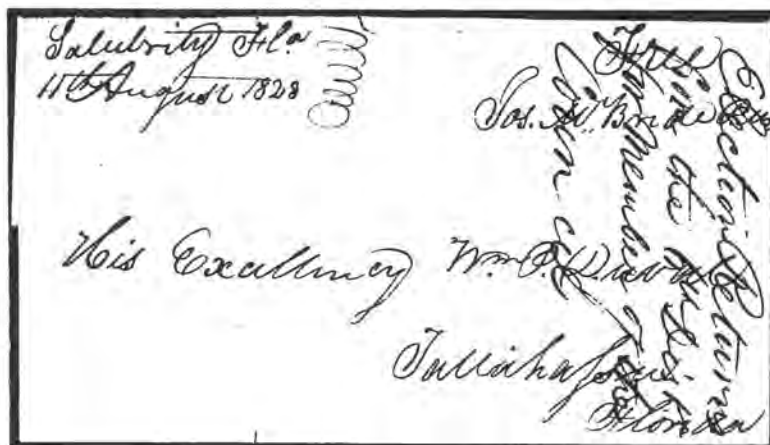 Salubrity Fla
11th August 1828
Free
Jos. McBride PM
His Excellency Wm P. Duval
Tallahassee
Florida
Election Returns
the
Member of
Council